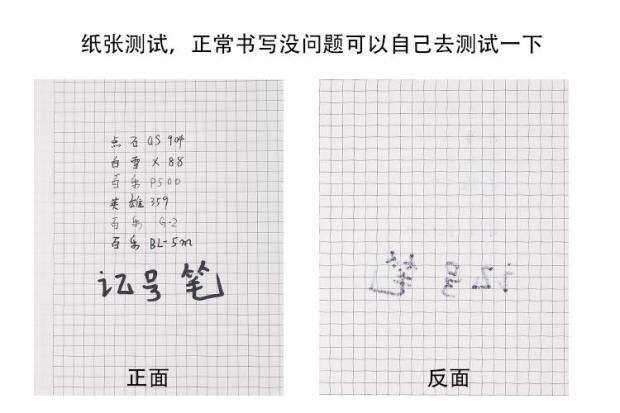 纸张测试，正常书写没问题可以自己去测试一下
点石 GS 904
白雪 X 88
百乐 P500
英雄 359
百乐 G-2
百乐 BL-5m
记号笔
正面
记号笔
反面